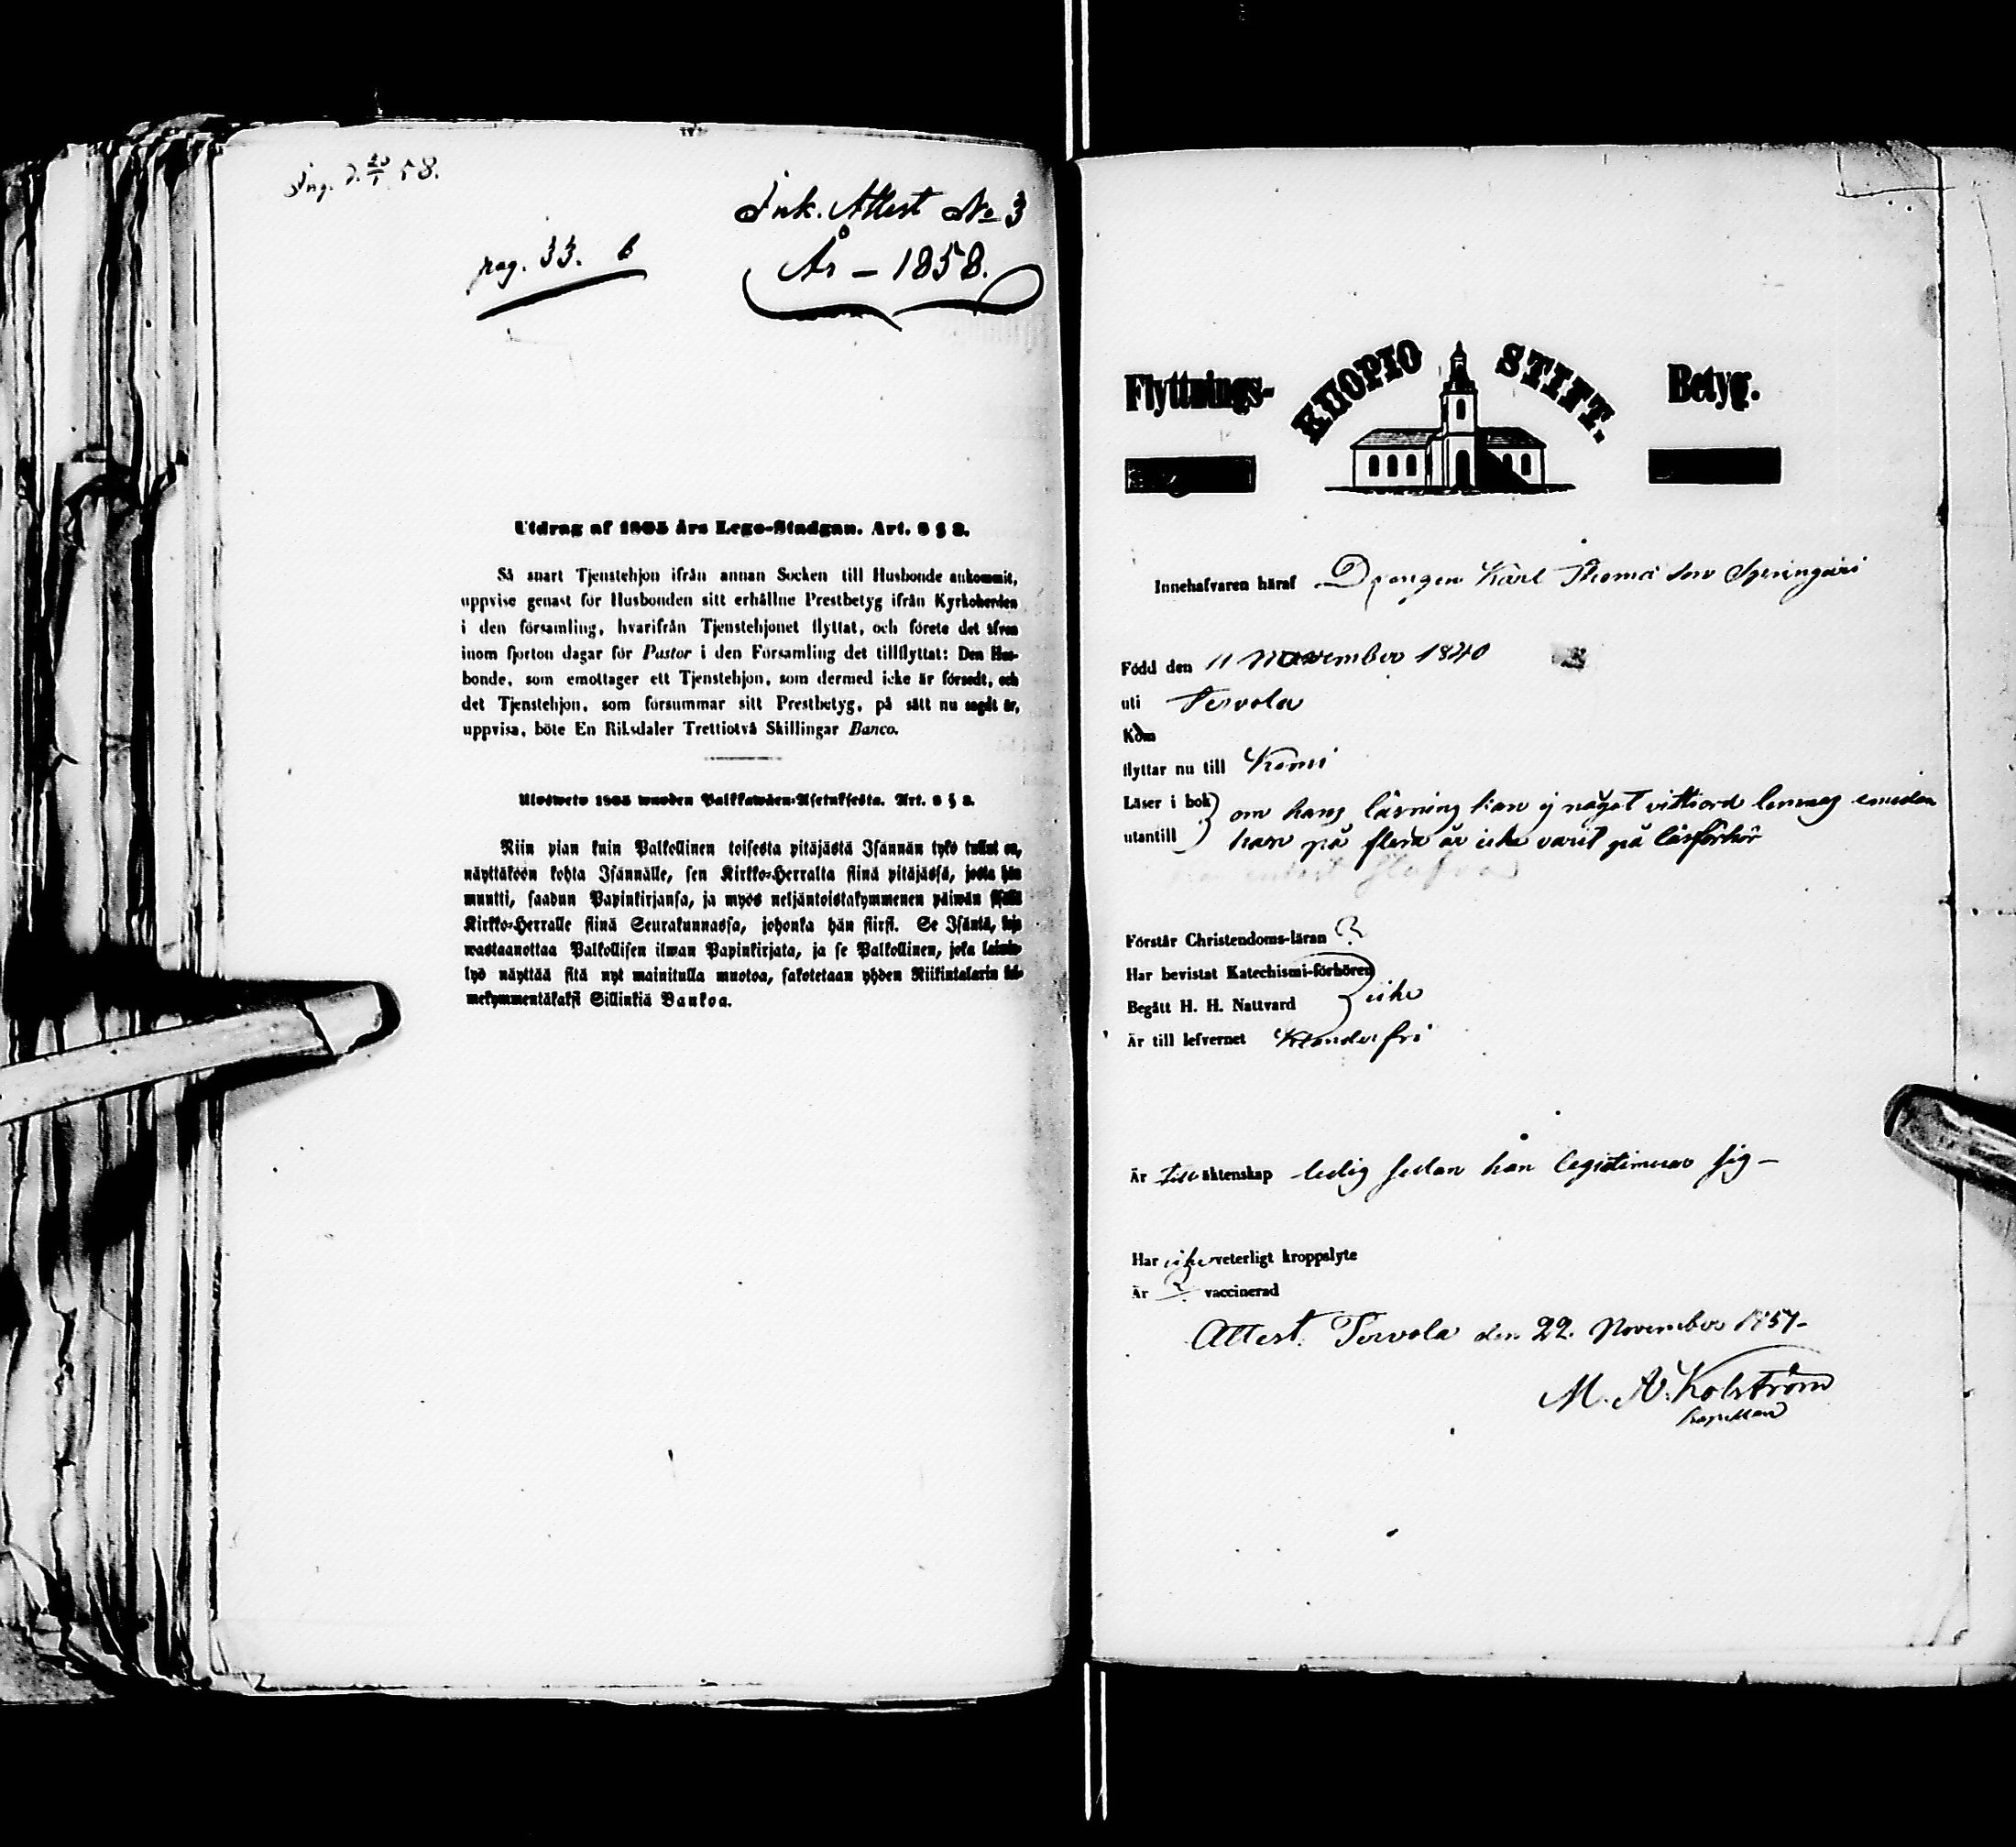 Ing. d. 20/1 58.
Ink. Attest No 3
År – 1858.
pag. 33. b
Utdrag af 1805 års Lego-Stadgan. Art. 8 § 2.
Så snart Tjenstehjon ifrån annan Socken till Husbonde ankommit,
uppvise genast för Husbonden sitt erhållne Prestbetyg ifrån Kyrkoherden
i den församling, hvarifrån Tjenstehjonet flyttat, och förete det äfven
inom fjorton dagar för Pastor i den Församling det tillflyttat: Den Hus-
bonde, som emottager ett Tjenstehjon, som dermed icke är försedt, och
det Tjenstehjon, som försummar sitt Prestbetyg, på sätt nu sagdt är,
uppvisa, böte En Riksdaler Trettiotvå Skillingar Banco.
Ulosweto 1805 wuoden Palkkawäen-Asetuksesta. Art. 8 § 2.
Niin pian kuin Palkollinen toisesta pitäjästä Isännän tykö tullut on,
näyttäköön kohta Isännälle, sen Kirkko-Herralta siinä pitäjässä, josta hän
muutti, saadun Papinkirjansa, ja myös neljäntoistakymmenen päiwän sisällä
Kirkko-Herralle siinä Seurakunnassa, johonka hän siirsi. Se Isäntä, joka
wastaanottaa Palkollisen ilman Papinkirjata, ja se Palkollinen, joka laimin-
lyö näyttää sitä nyt mainitulla muotoa, sakotetaan yhden Riikintalarin kol-
mekymmentäkaksi Sillinkiä Bankoa.
Flyttnings- KUOPIO STIFT. Betyg.
Innehafvaren häraf Drengen Karl Thomæ son Springari
Född den 11 November 1840
uti Tervola
Kom
flyttar nu till Kemi
Läser i bok om hans läsning kan ej något vittsord lemnas emedan
utantill han på flera år icke varit på läsförhör
Förstår Christendoms-läran ?
Har bevistat Katechismi-förhören
Begått H. H. Nattvard icke
Är till lefvernet Klanderfri
Är till äktenskap ledig sedan han legitimerar sig –
Har icke veterligt kroppslyte
Är ? vaccinerad
Attest. Tervola den 22. November 1857–
M. A. Kolström
Kapellan